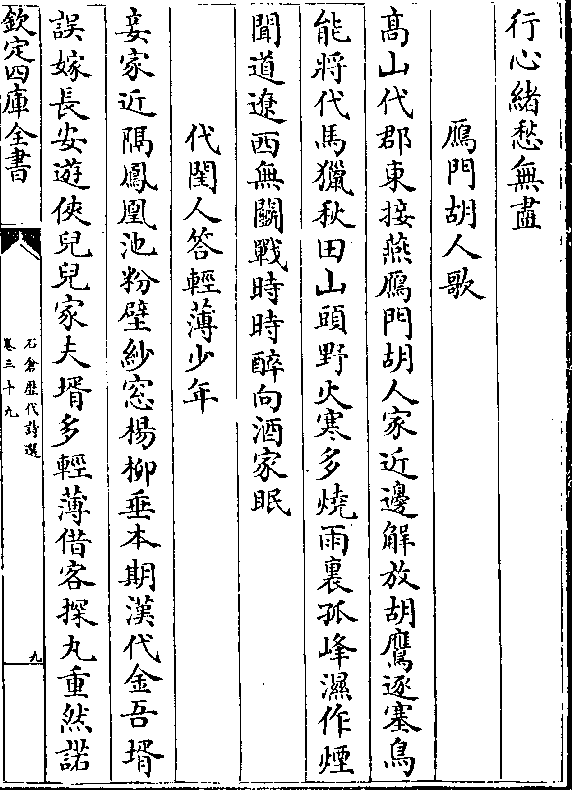 行心緒愁無盡
鴈門胡人歌
髙山代郡東接燕鴈門胡人家近邊解放胡鷹逐塞鳥
能將代馬獵秋田山頭野火寒多燒雨裏孤峰濕作煙
聞道遼西無鬭戰時時醉向酒家眠
代閨人答輕薄少年
妾家近隔鳳凰池粉壁紗窓楊柳垂本期漢代金吾壻
誤嫁長安遊俠兒兒家夫壻多輕薄借客探丸重然諾
欽定四庫全書
石倉歷代詩選
卷三十九
九